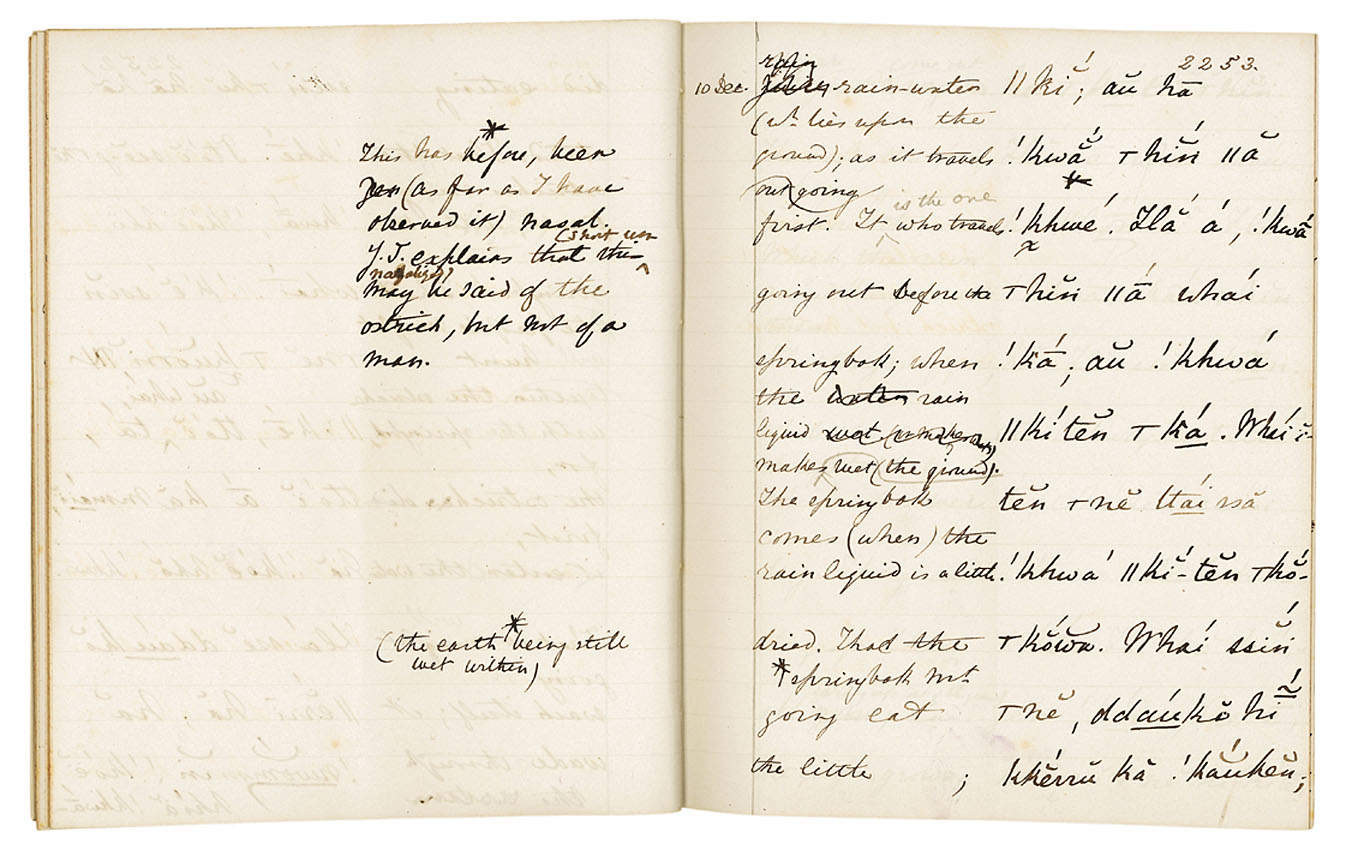 This has before, been
(as far as I have
observed it) nasal.
J.T. explains that this
(short & nasalized)
may be said of the
ostrich, but not of a
man.
(the earth being still
wet within)
2253.
rain
10 Dec. rain-water ǁkĭ́; aŭ hā
(wh. lies upon the
ground); as it travels !kwā̆́ ⊤hĭ́ń ǁā
out going
first. It is the one who travels !khwé. Ĭlā á, !kwā̆́
going out before the ⊤hĭń ǁā́ whaí
springbok; when !kā́, aŭ !khwá
the water rain
liquid wet makes ǁkí tĕn ⊤ká. Whaí ĭ-
makes wet (the ground).
The springbok tĕn ⊤nĕ ttaí ssă
comes (when) the
rain liquid is a little !khwá ǁkĭ́-tĕn ⊤kŏ́-
dried. That the ⊤kŏ́wa. Whaí ssĭń
springbok mt
going eat ⊤nĕ, ddaúkŏ hĭ̃́
the little ; kkérrŭ kă !kaúkĕn;